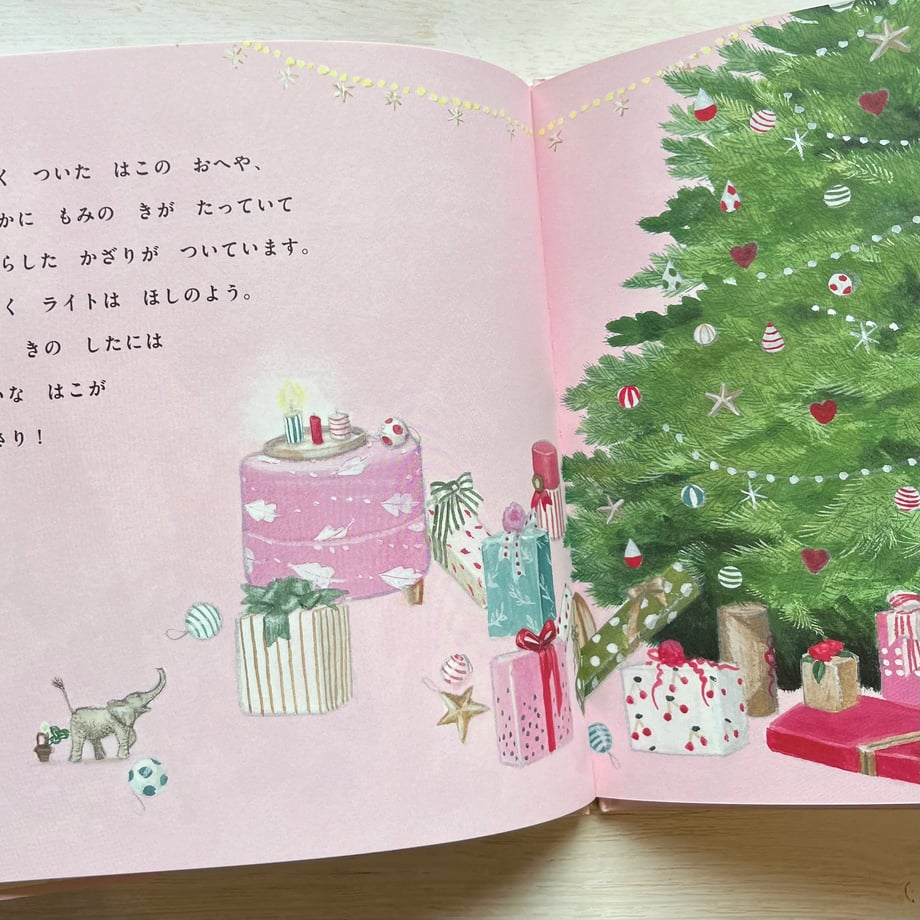 く ついた はこの おへや、
かに もみの きが たっていて
らした かざりが ついています。
く ライトは ほしのよう。
きの したには
な はこが
り！